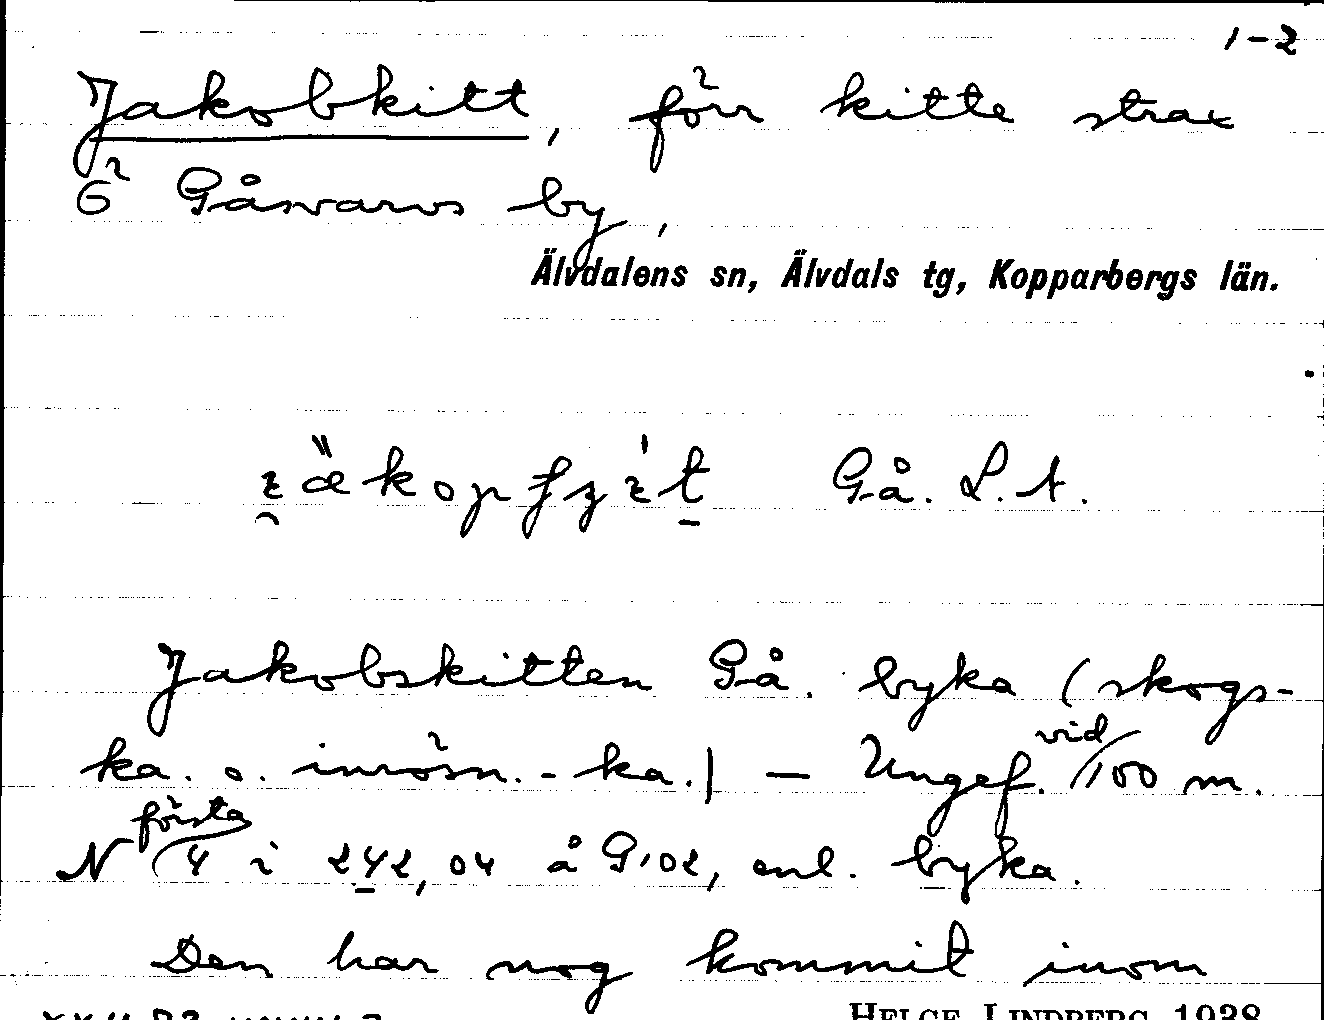 1-2
Jakobkitt, förr kitte strax
Ö Gåsvarvs by,
Älvdalens sn, Älvdals tg, Kopparbergs län.
Gå. L.A.
Jakobskitten Gå. byka (skogs-
ka. o. inrösn.-ka.) — Ungef. vid 100 m.
N första 4 i 242,04 å G102, enl. byka.
Den har nog kommit inom
HELGE LINDBERG 1938